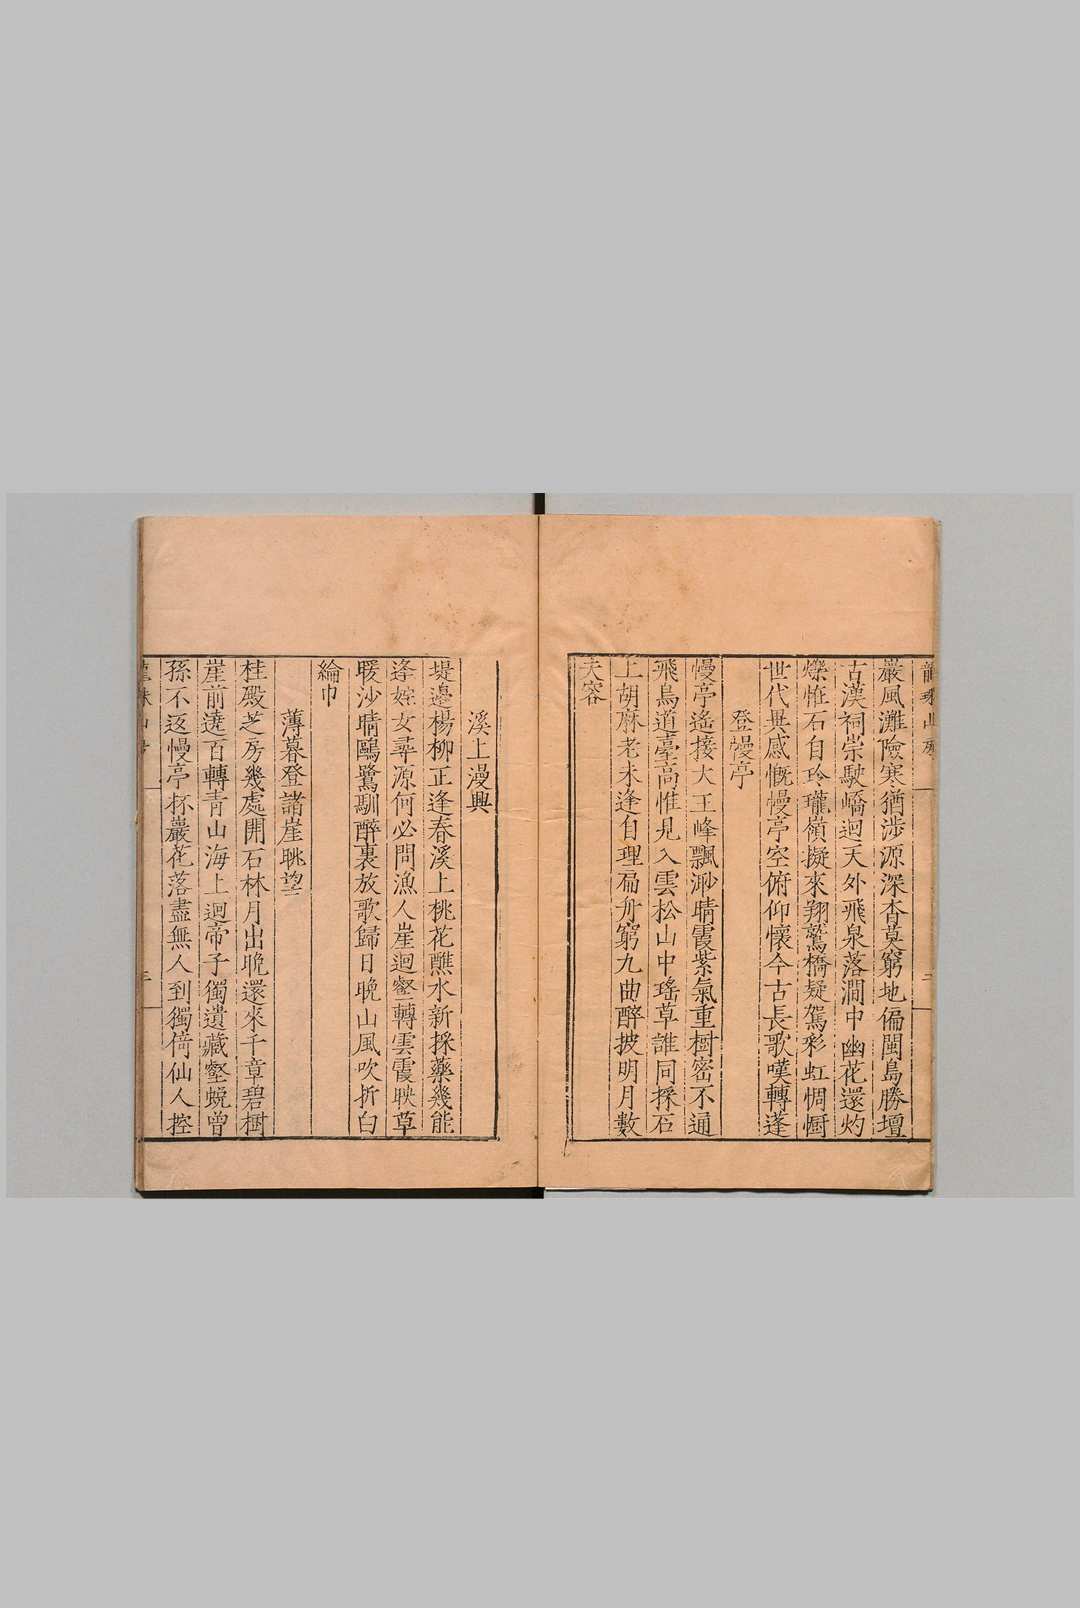 巖風灘險寒猶涉源深杳莫窮地偏閩島勝壇
古漢祠崇駛嶠迴天外飛泉落澗中幽花還灼
爍恠石自玲瓏嶺擬來翔鷲橋疑駕彩虹惆㕑
世代異感慨幔亭空俯仰懷今古長歌嘆轉蓬
登幔亭
幔亭遙接大王峰飄渺晴霞紫氣重樹密不通
飛鳥道臺高惟見入雲松山中瑤草誰同採石
上胡麻老未逢自理扁舟窮九曲醉披明月數
芙容
溪上漫興
堤邊楊柳正逢春溪上桃花蘸水新採藥幾能
逢姹女尋源何必問漁人崖迴壑轉雲霞映草
暖沙晴鷗鷺馴醉裏放歌歸日晚山風吹折白
綸巾
薄暮登諸崖眺望
桂殿芝房幾處開石林月出晚還來千章碧樹
崖前遶百轉青山海上迴帝子獨遺藏壑蛻曾
孫不返幔亭杯巖花落盡無人到獨倚仙人控